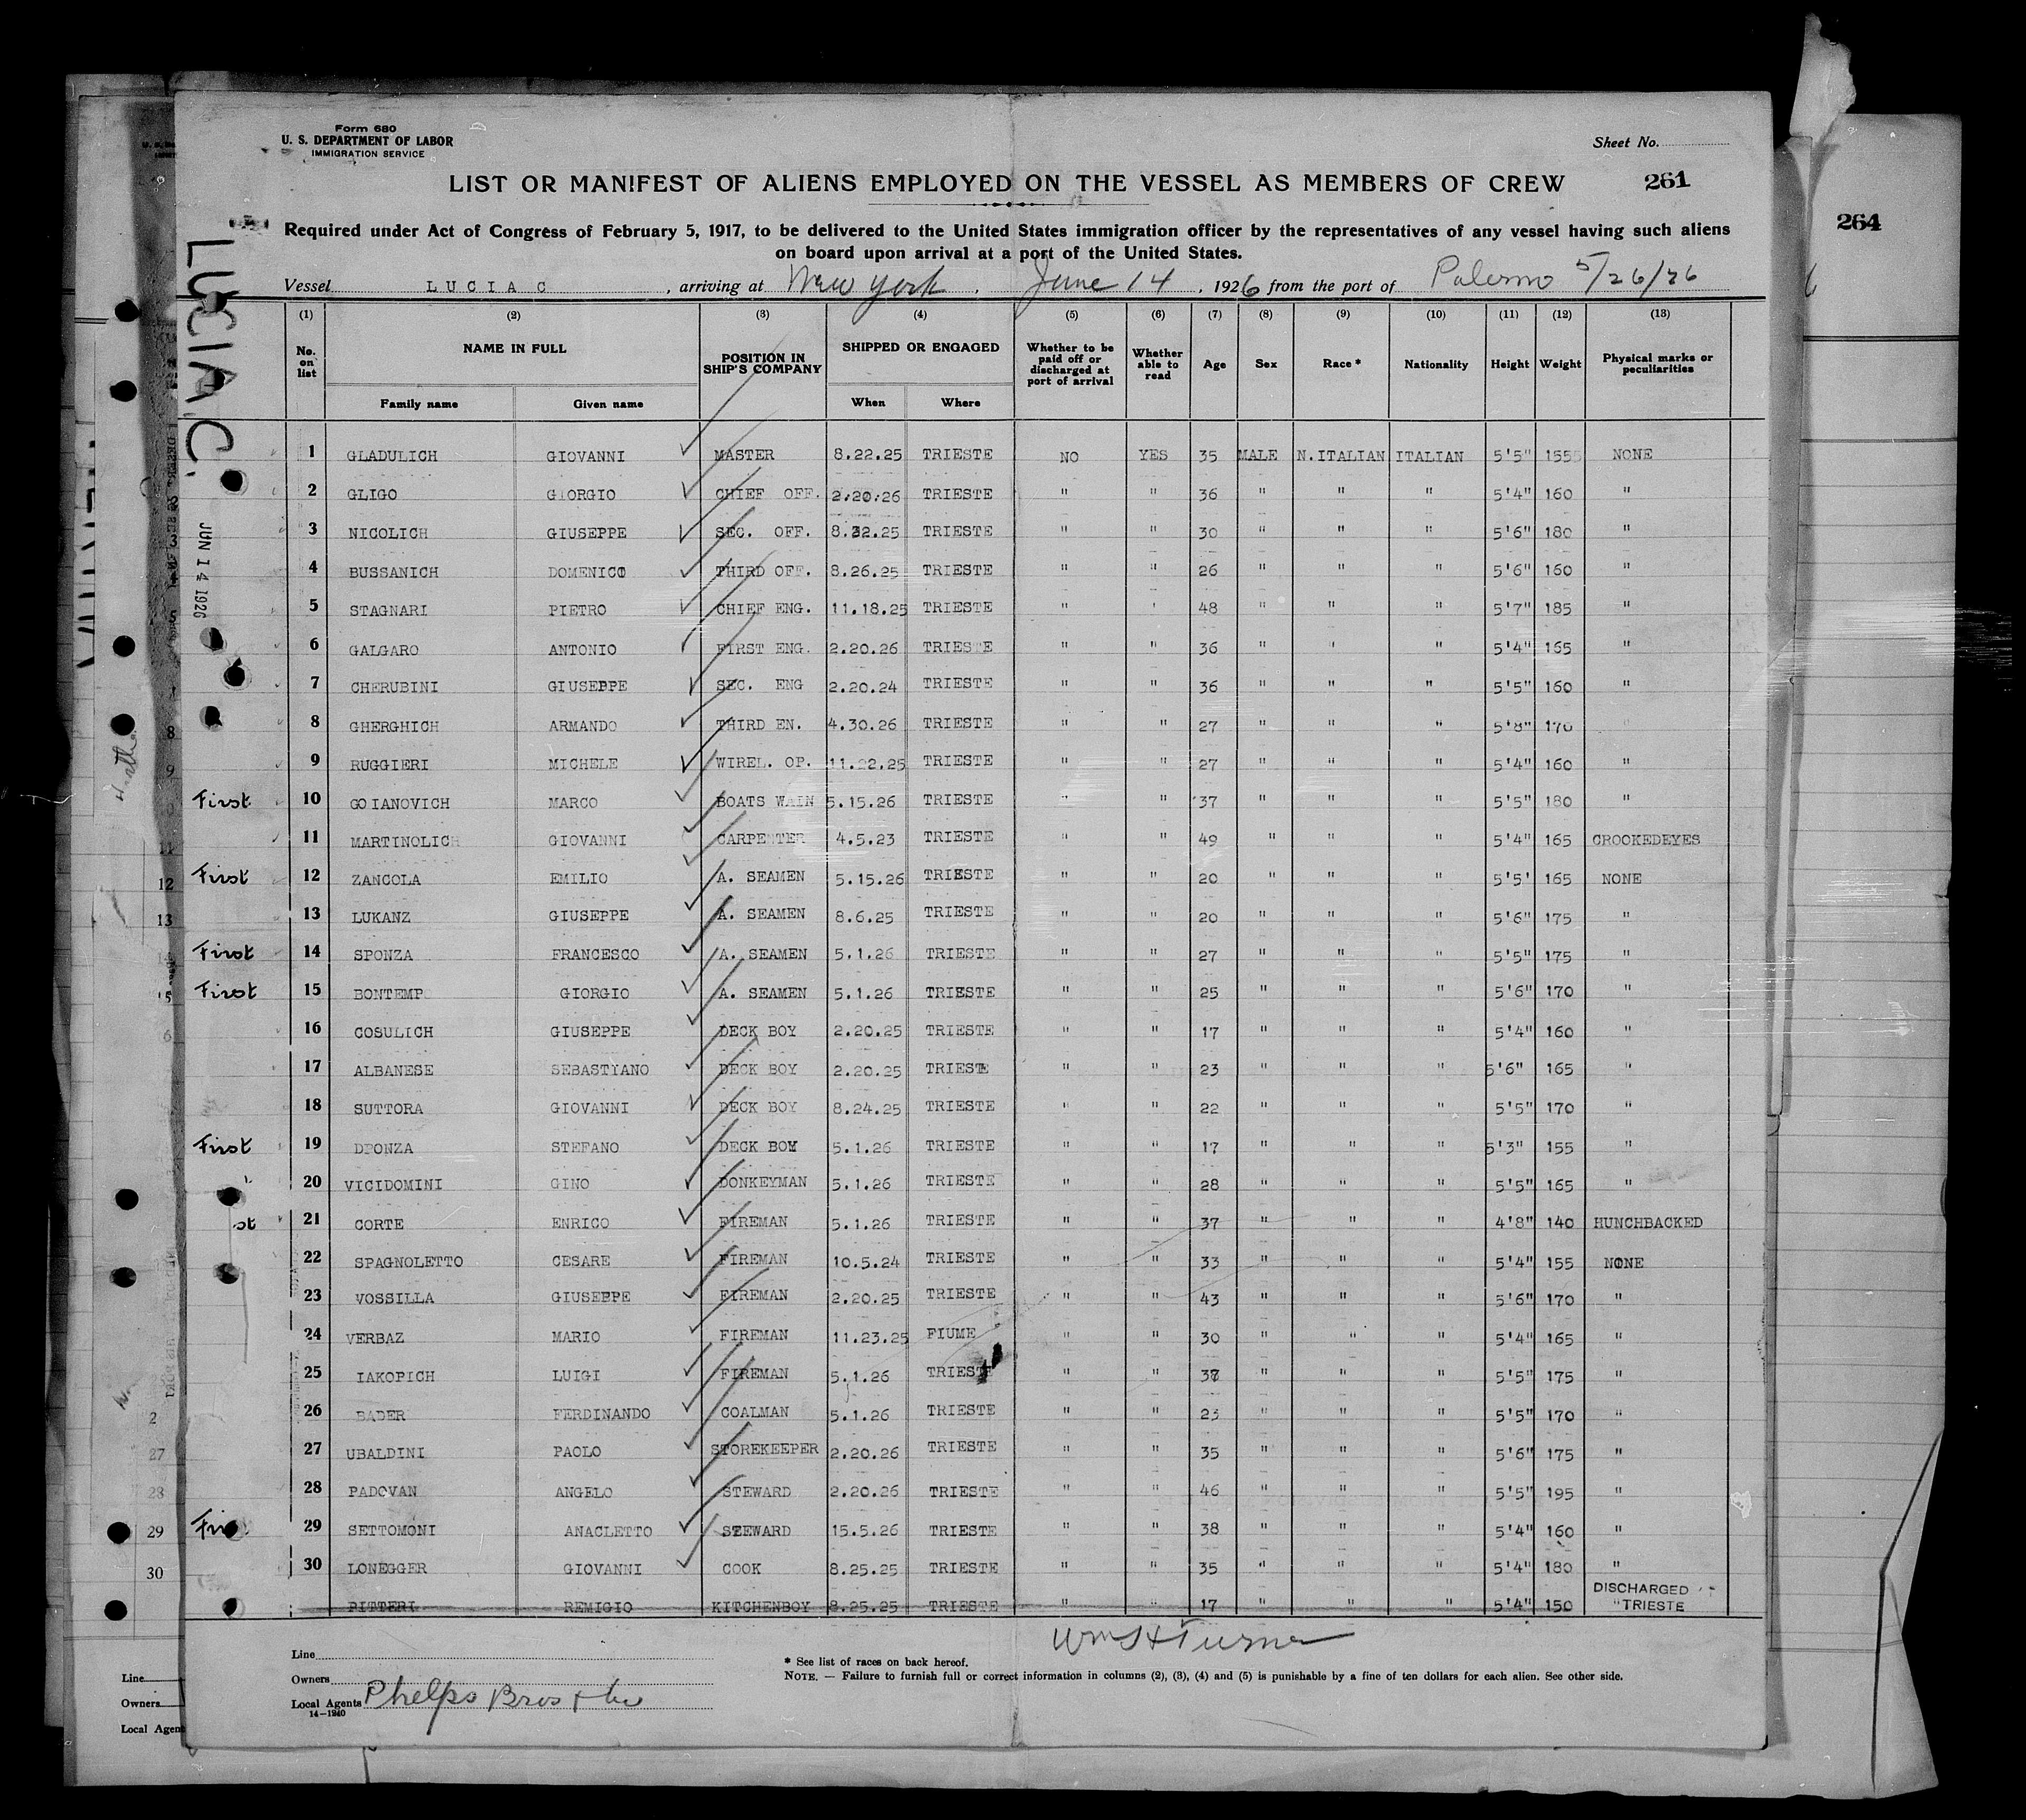 Form 680
U. S. DEPARTMENT OF LABOR
IMMIGRATION SERVICE
Sheet No.
LIST OR MANIFEST OF ALIENS EMPLOYED ON THE VESSEL AS MEMBERS OF CREW 261
264
Required under Act of Congress of February 5, 1917, to be delivered to the United States immigration officer by the representatives of any vessel having such aliens
on board upon arrival at a port of the United States.
Vessel LUCIA C, arriving at New York, June 14, 1926 from the port of Palermo 5/26/26
LUCIA C.
JUN 14 1926
(1) (2) (3) (4) (5) (6) (7) (8) (9) (10) (11) (12) (13)
No. on list NAME IN FULL POSITION IN SHIP'S COMPANY SHIPPED OR ENGAGED Whether to be paid off or discharged at port of arrival Whether able to read Age Sex Race * Nationality Height Weight Physical marks or peculiarities
Family name Given name When Where
1 GLADULICH GIOVANNI MASTER 8.22.25 TRIESTE NO YES 35 MALE N.ITALIAN ITALIAN 5'5" 1555 NONE
2 GLIGO GIORGIO CHIEF OFF. 2.20.26 TRIESTE " " 36 " " " 5'4" 160 "
3 NICOLICH GIUSEPPE SEC. OFF. 8.22.25 TRIESTE " " 30 " " " 5'6" 180 "
4 BUSSANICH DOMENICO THIRD OFF. 8.26.25 TRIESTE " " 26 " " " 5'6" 160 "
5 STAGNARI PIETRO CHIEF ENG. 11.18.25 TRIESTE " ' 48 " " " 5'7" 185 "
6 GALGARO ANTONIO FIRST ENG. 2.20.26 TRIESTE " " 36 " " " 5'4" 165 "
7 CHERUBINI GIUSEPPE SEC. ENG 2.20.24 TRIESTE " " 36 " " " 5'5" 160 "
8 GHERGHICH ARMANDO THIRD EN. 4.30.26 TRIESTE " " 27 " " " 5'8" 170 "
9 RUGGIERI MICHELE WIREL. OP. 11.22.25 TRIESTE " " 27 " " " 5'4" 160 "
First 10 GOIANOVICH MARCO BOATS WAIN 5.15.26 TRIESTE " " 37 " " " 5'5" 180 "
11 MARTINOLICH GIOVANNI CARPENTER 4.5.23 TRIESTE " " 49 " " " 5'4" 165 CROOKEDEYES
First 12 ZANCOLA EMILIO A. SEAMEN 5.15.26 TRIESTE " " 20 " " " 5'5' 165 NONE
13 LUKANZ GIUSEPPE A. SEAMEN 8.6.25 TRIESTE " " 20 " " " 5'6" 175 "
First 14 SPONZA FRANCESCO A. SEAMEN 5.1.26 TRIESTE " " 27 " " " 5'5" 175 "
First 15 BONTEMPO GIORGIO A. SEAMEN 5.1.26 TRIESTE " " 25 " " " 5'6" 170 "
16 COSULICH GIUSEPPE DECK BOY 2.20.25 TRIESTE " " 17 " " " 5'4" 160 "
17 ALBANESE SEBASTYANO DECK BOY 2.20.25 TRIESTE " " 23 " " " 5'6" 165 "
18 SUTTORA GIOVANNI DECK BOY 8.24.25 TRIESTE " " 22 " " " 5'5" 170 "
First 19 DPONZA STEFANO DECK BOY 5.1.26 TRIESTE " " 17 " " " 5'3" 155 "
20 VICIDOMINI GINO DONKEYMAN 5.1.26 TRIESTE " " 28 " " " 5'5" 165 "
st 21 CORTE ENRICO FIREMAN 5.1.26 TRIESTE " " 37 " " " 4'8" 140 HUNCHBACKED
22 SPAGNOLETTO CESARE FIREMAN 10.5.24 TRIESTE " " 33 " " " 5'4" 155 NONE
23 VOSSILLA GIUSEPPE FIREMAN 2.20.25 TRIESTE " " 43 " " " 5'6" 170 "
24 VERBAZ MARIO FIREMAN 11.23.25 FIUME " " 30 " " " 5'4" 165 "
25 IAKOPICH LUIGI FIREMAN 5.1.26 TRIESTE " " 38 " " " 5'5" 175 "
26 BADER FERDINANDO COALMAN 5.1.26 TRIESTE " " 23 " " " 5'5" 170 "
27 UBALDINI PAOLO STOREKEEPER 2.20.26 TRIESTE " " 35 " " " 5'6" 175 "
28 PADOVAN ANGELO STEWARD 2.20.26 TRIESTE " " 46 " " " 5'5" 195 "
29 SETTOMONI ANACLETTO STEWARD 15.5.26 TRIESTE " " 38 " " " 5'4" 160 "
30 LONEGGER GIOVANNI COOK 8.25.25 TRIESTE " " 35 " " " 5'4" 180 "
PITTERI REMIGIO KITCHENBOY 8.25.25 TRIESTE " " 17 " " " 5'4" 150 DISCHARGED "TRIESTE
Wm H Turner
Line
Owners
Local Agents Phelps Bros & Co
14—1240
* See list of races on back hereof.
NOTE. — Failure to furnish full or correct information in columns (2), (3), (4) and (5) is punishable by a fine of ten dollars for each alien. See other side.
Line
Owners
Local Agent